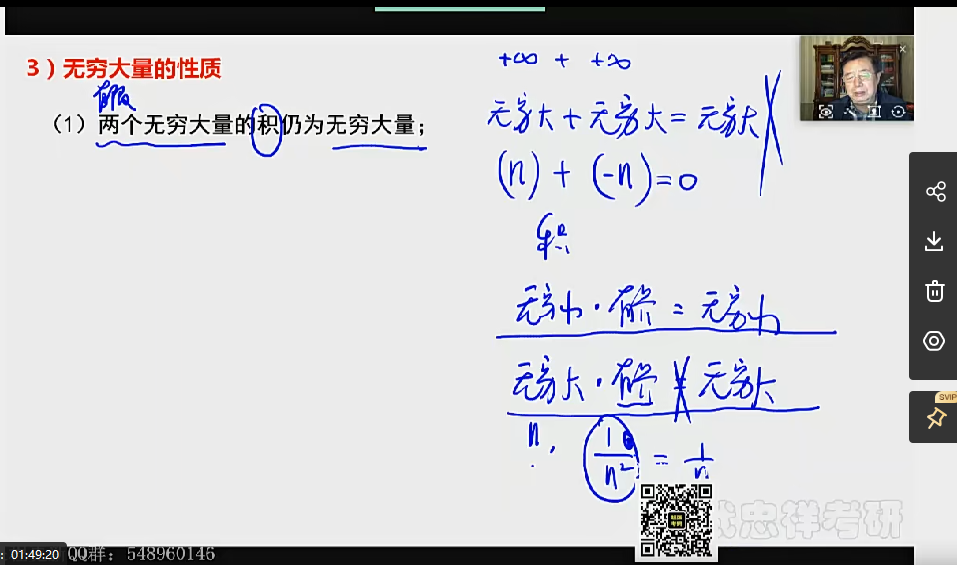 3）无穷大量的性质
有限
（1）两个无穷大量的积仍为无穷大量；
+∞ + +∞
无穷大+无穷大=无穷大
(n) + (-n)=0
积
无穷小·有界=无穷小
无穷大·有界≠无穷大
n, 1/n² = 1/n
武忠祥考研
SVIP
01:49:20 QQ群：548960146